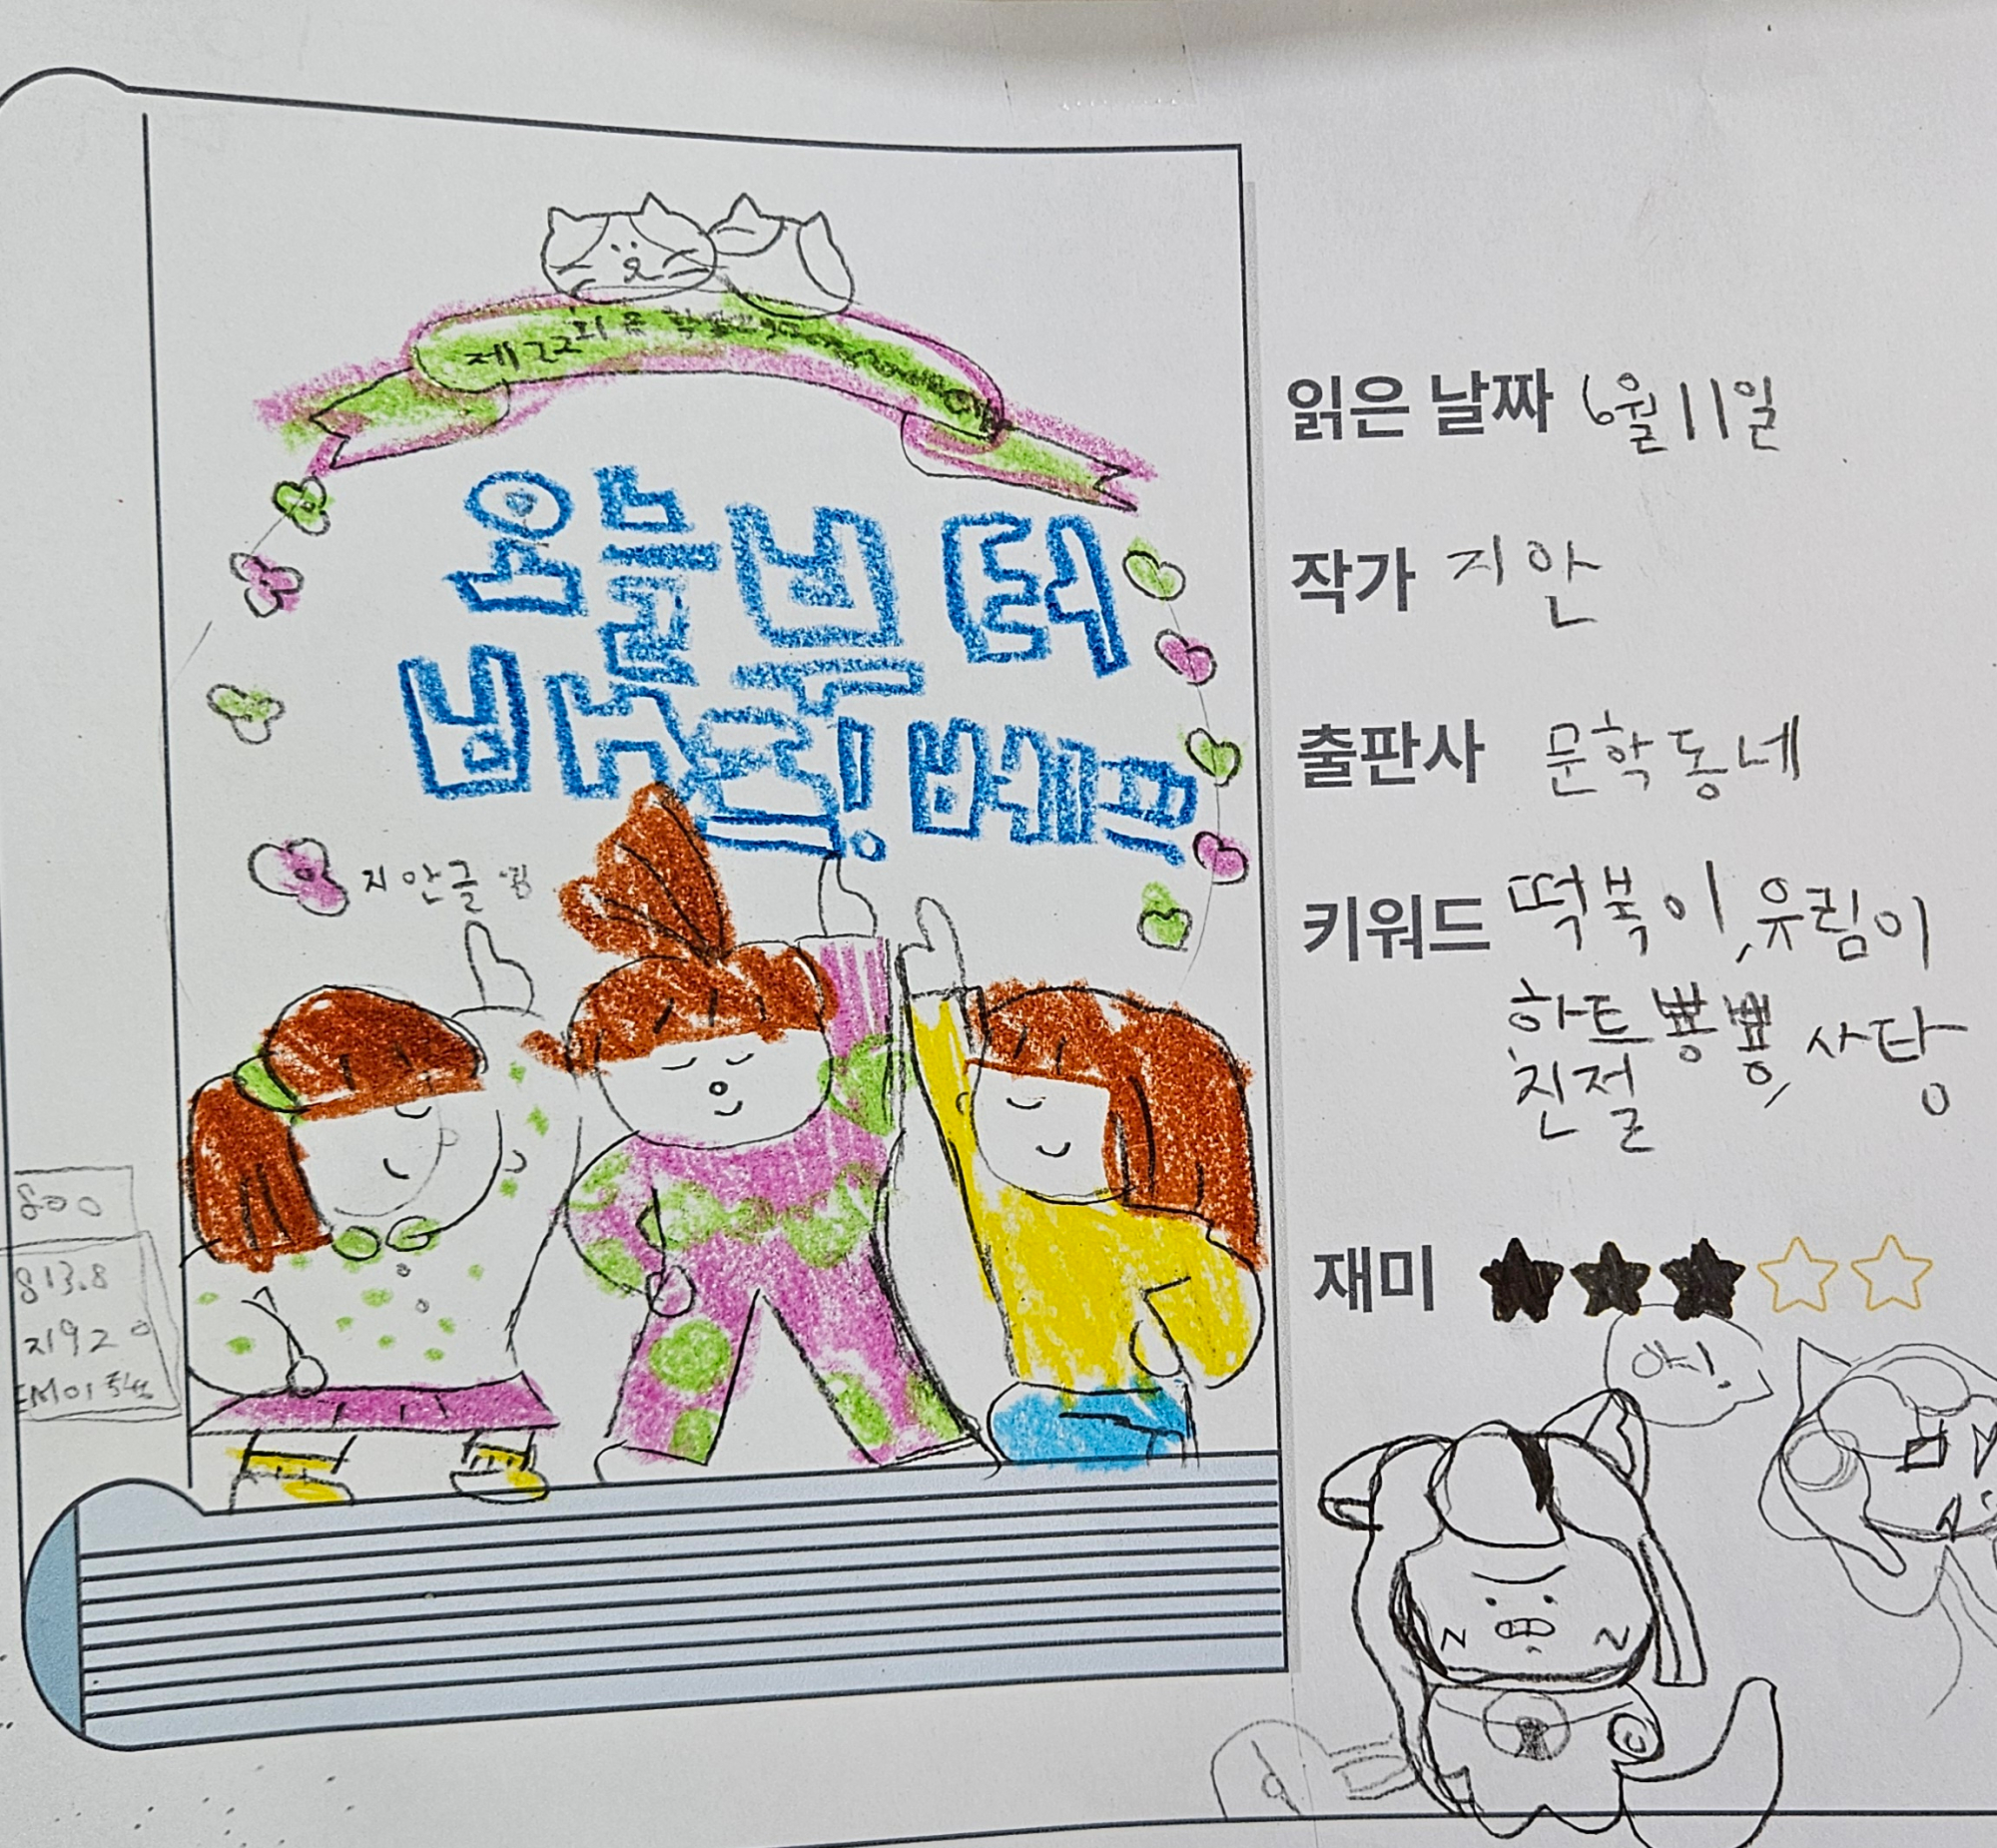 제22회
오늘부터
배프! 베프!
지안 글
800
813.8
지92ㅇ
읽은 날짜 6월 11일
작가 지안
출판사 문학동네
키워드 떡볶이, 유림이
하트뿅뿅, 사탕
친절
재미